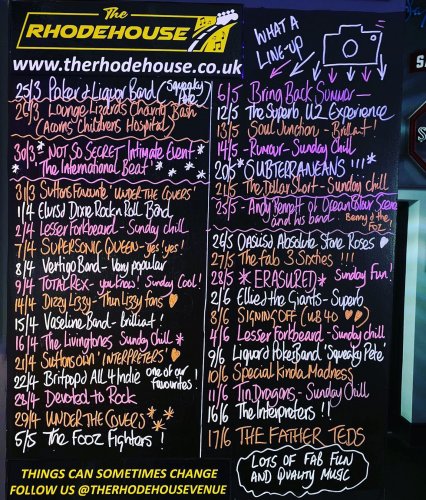 The
RHODEHOUSE
www.therhodehouse.co.uk
25/3 Poker & Liquor Band (Squeaky Pete)
26/3 Lounge Lizards Charity Bash
(Acorns Childrens Hospital)
30/3 * NOT SO SECRET Intimate Event *
* The International Beat *
31/3 Suttons Favourite 'UNDER THE COVERS'
1/4 Elvis! Dixie Rock n Roll Band
2/4 Lesser Forkbeard - Sunday Chill
7/4 SUPERSONIC QUEEN - yes yes!
8/4 Vertigo Band - Very popular
9/4 TOTAL REX - you know! Sunday Cool!
14/4 Dizzy Lizzy - Thin Lizzy fans
15/4 Vaseline Band - brilliant!
16/4 The Livingtones Sunday Chill *
21/4 Suttons own 'INTERPRETERS'
22/4 Britpop! All 4 Indie one of our favourites!
28/4 Devoted to Rock
29/4 UNDER THE COVERS * *
5/5 The FOOZ Fighters!
WHAT A
LINE-UP
6/5 Bring Back Summer -
12/5 The Superb U2 Experience
13/5 Soul Junction - Brilliant!
14/5 Rumour - Sunday Chill
20/5 *SUBTERRANEANS !!!*
21/5 The Dollar Short - Sunday chill
25/5 - Andy Bennett of Ocean Colour Scene
and his band - Benny & the Foz
26/5 (Oasis) Absolute Stone Roses
27/5 The Fab 3 Sixties !!!
28/5 * ERASURED * Sunday Fun!
2/6 Ellie & the Giants - Superb
8/6 SIGNING OFF (UB40)
4/6 Lesser Forkbeard - Sunday chill
9/6 Liquor & Poker Band 'Squeaky Pete'
10/6 Special Kinda Madness
11/6 Tin Dragons - Sunday Chill
16/6 The Interpreters !!
17/6 THE FATHER TEDS
LOTS OF FAB FUN
AND QUALITY MUSIC
THINGS CAN SOMETIMES CHANGE
FOLLOW US @THERHODEHOUSEVENUE